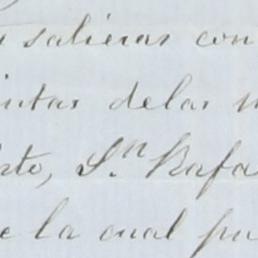 salieras con
intas delas
sto, Sn. Rafa
e la cual pu